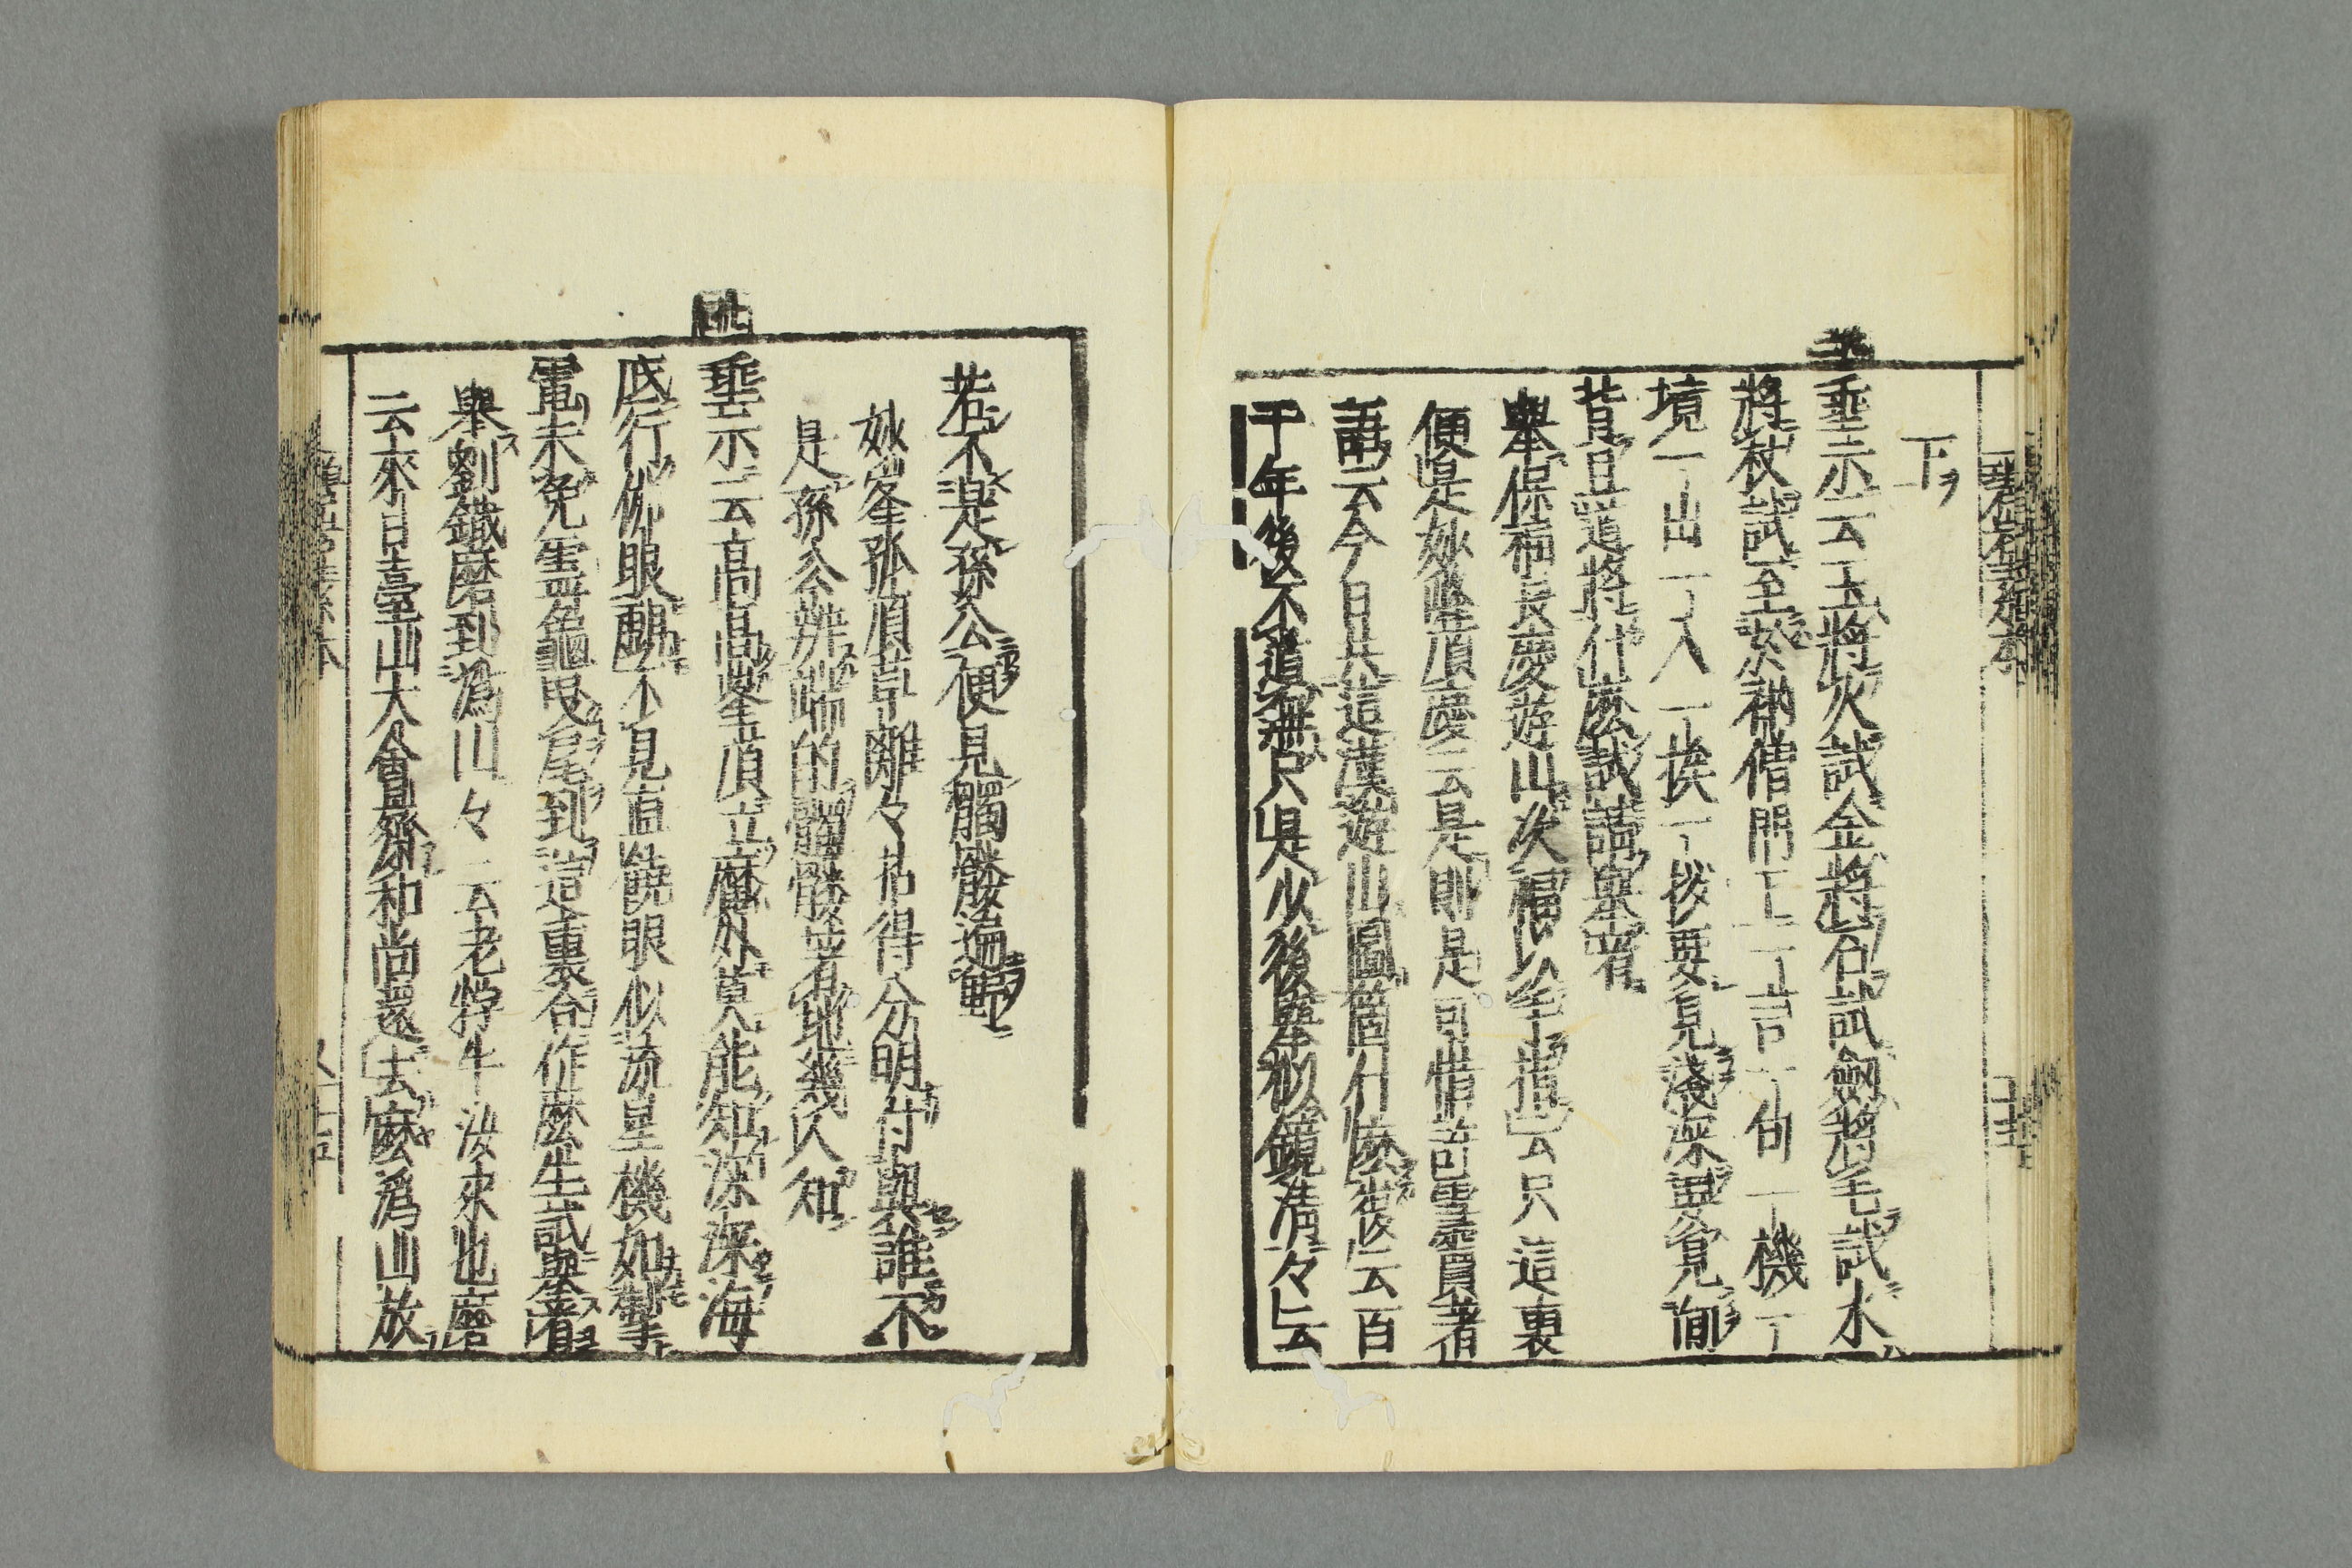 下ヲ
垂示云玉將火試金將石試劔將毛試水
將杖試至於衲僧門下一言一句一機一
境一出一入一挨一拶要見淺深要見向
背且道將什麼試請擧看
擧保福長慶遊山次福以手指云只這裏
便是妙峯頂慶云是則是可惜許雪竇著
語云今日共這漢遊山圖箇什麼復云百
千年後不道無只是少後擧似鏡淸々云
若不是孫公便見髑髏遍野
妙峯孤頂草離々拈得分明付與誰不
是孫公辨端的髑髏著地幾人知
垂示云高高峯頂立魔外莫能知深深海
底行佛眼覷不見直饒眼似流星機如掣
電未免靈龜曳尾到這裏合作麼生試擧看
擧劉鐵磨到潙山々云老牸牛汝來也磨
云來日臺山大會齋和尚還去麼潙山放